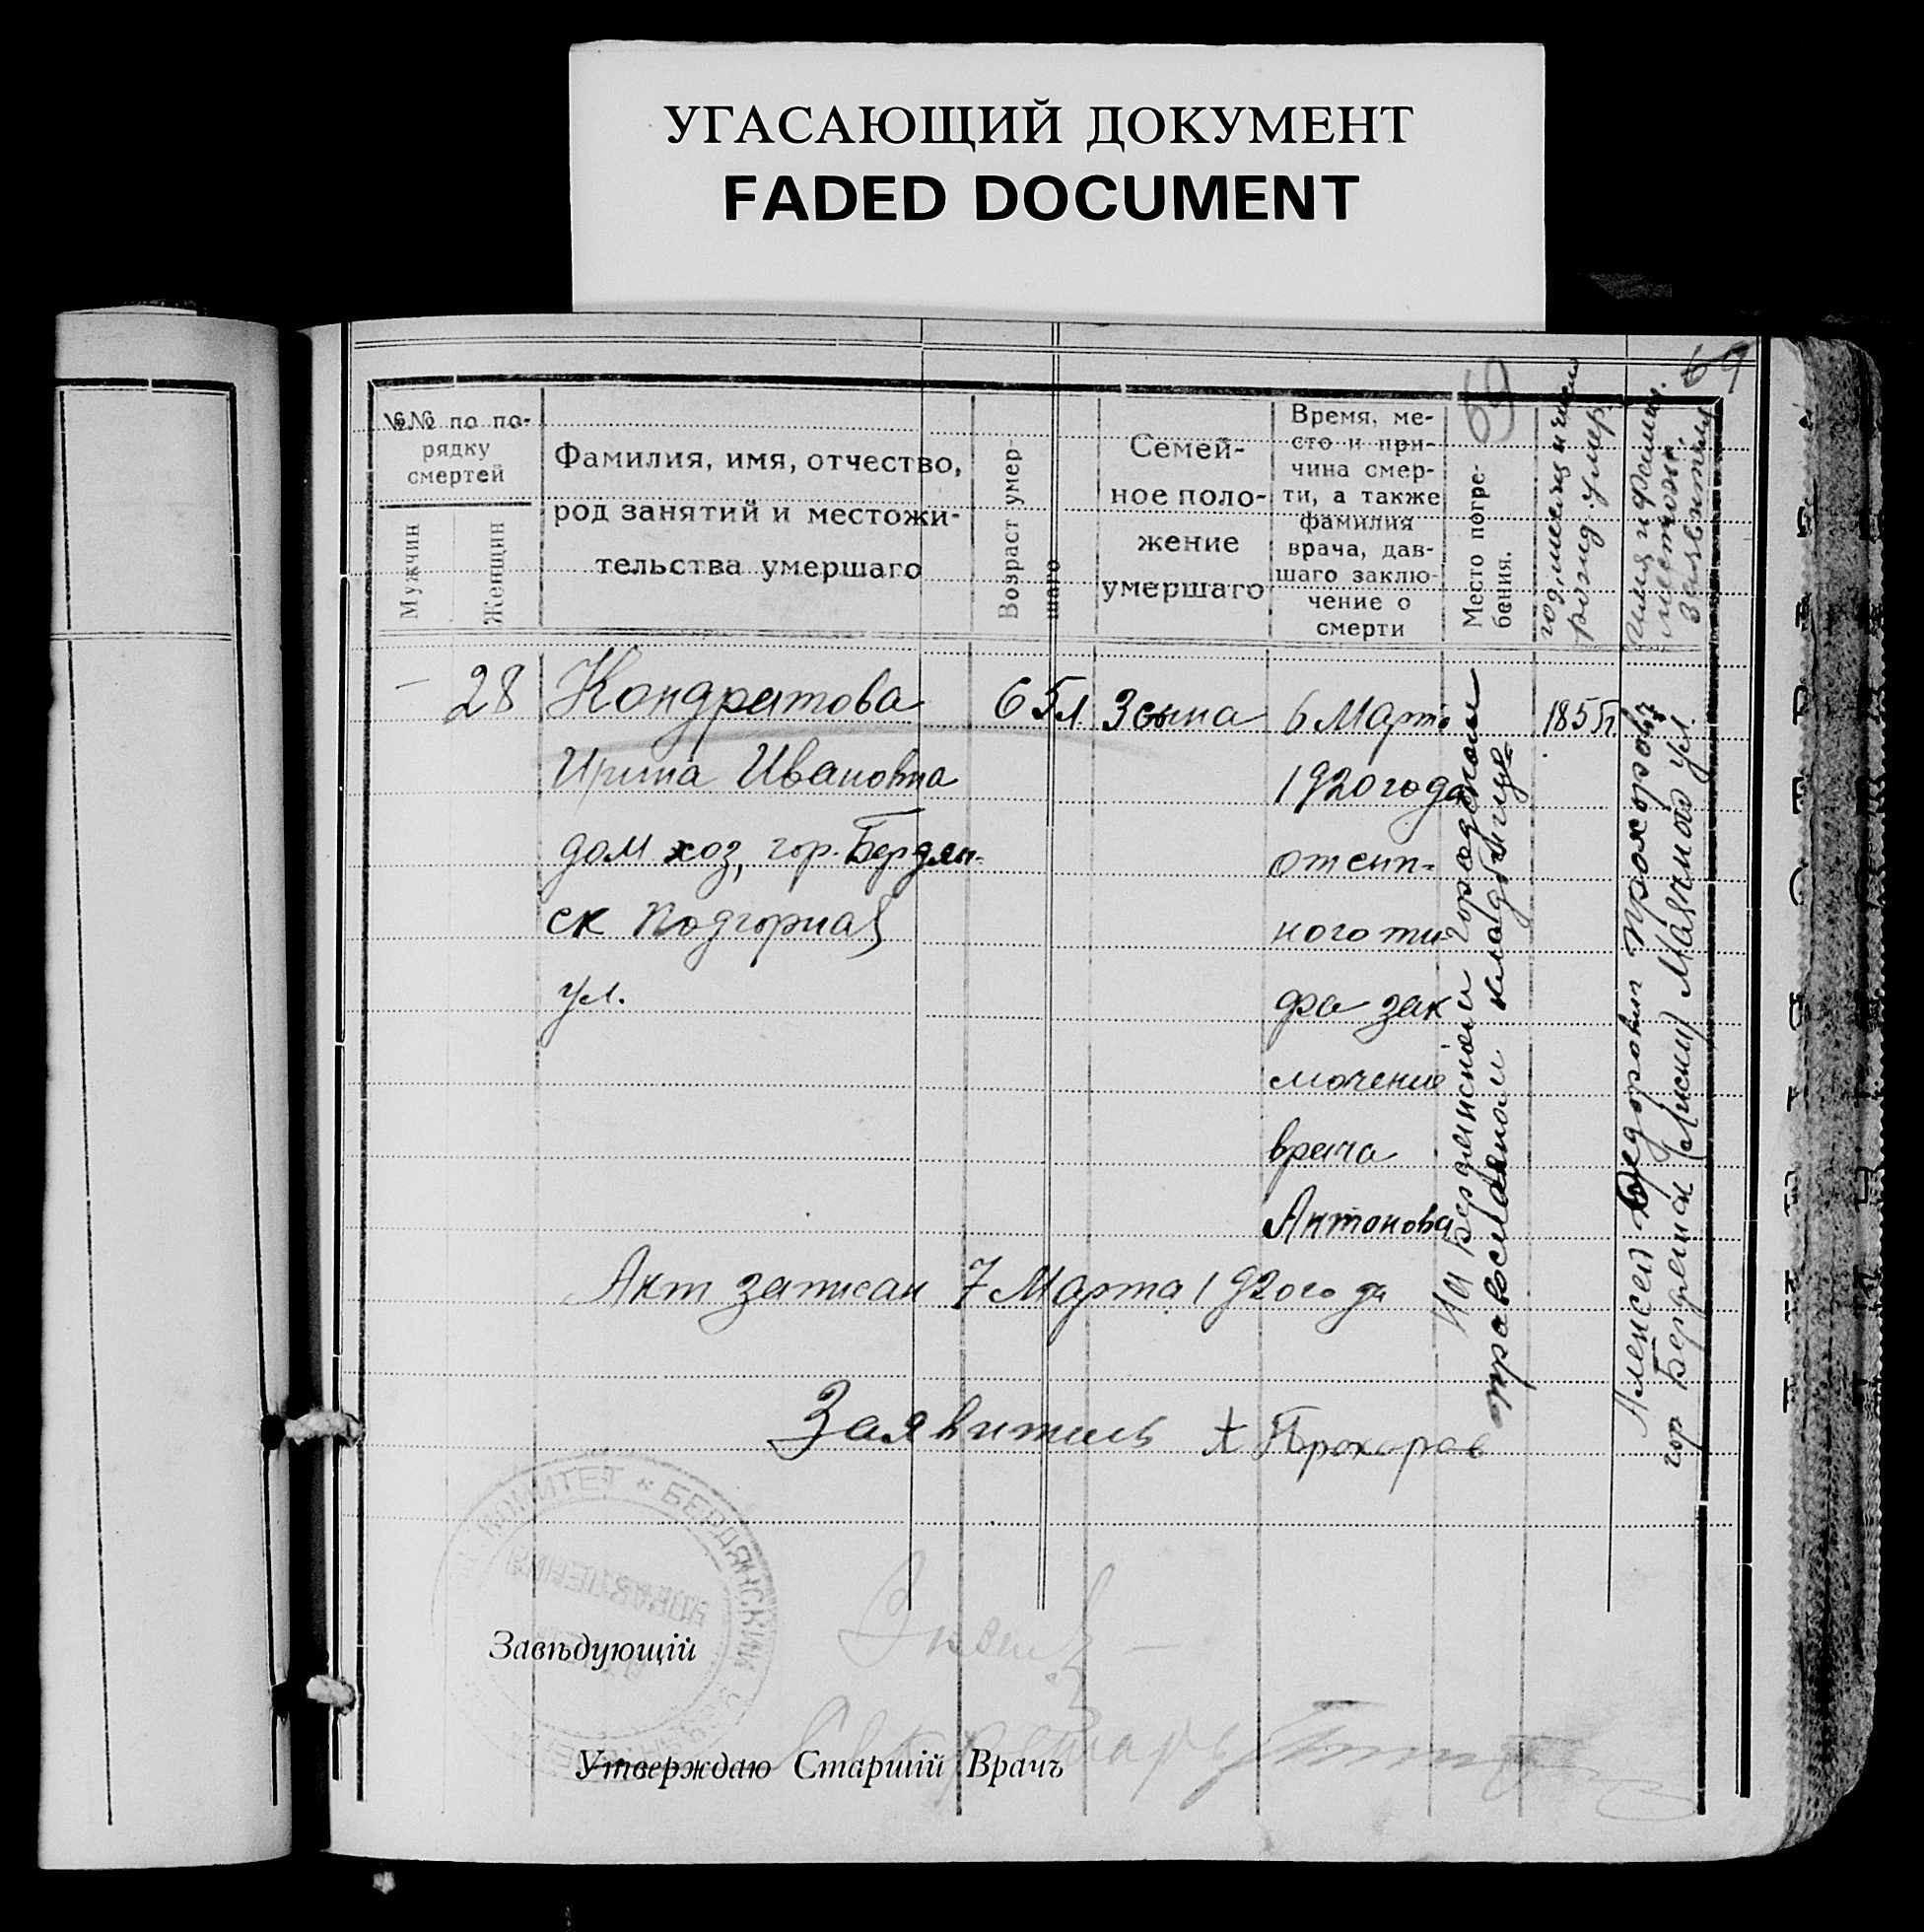 УГАСАЮЩИЙ ДОКУМЕНТ
FADED DOCUMENT
69
69
№№ по по-
рядку
смертей
Мужчин
Женщин
Фамилия, имя, отчество,
род занятий и местожи-
тельства умершаго
Возраст умер-
шаго
Семей-
ное поло-
жение
умершаго
Время, ме-
сто и при-
чина смер-
ти, а также
фамилия
врача, дав-
шаго заклю-
чение о
смерти
Место погре-
бения.
год, месяц и число
рожд. умер.
Имя и фамил.
заявител
— 28
Кондратова
Ирина Ивановна
дом хоз, гор. Бердян-
ск Подгорная
ул.
65 л.
3 сына
6 Марта
1920 года
от сип-
ного ти-
фа зак
лючение
врача
Антонова
На Бердянском городском
православном кладбище
1855 г
Алексей Федорович Прохоров
гор Бердянск Маячная ул.
Акт записан 7 Марта 1920 года
Заявитель х Прохоров
КОМИТЕТ * БЕРДЯНСКИЙ
Завѣдующій
Утверждаю Старшій Врачъ
Секретарь